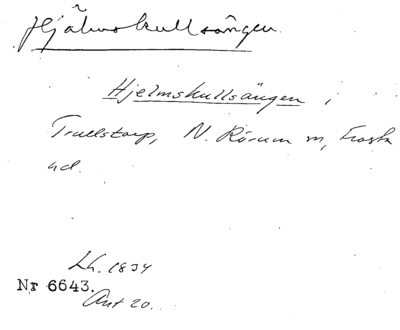 Hjälmskullsängen
Hjelmskullsängen i
Trulstorp, N. Rörum sn, Frosta
hd.
Lh. 1834
Nr 6643.
Akt 20.